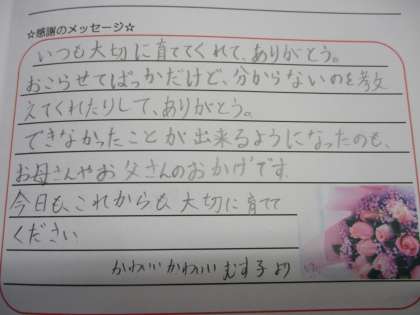 ☆感謝のメッセージ☆
いつも大切に育ててくれて、ありがとう。
おこらせてばっかだけど、分からないのを教
えてくれたりして、ありがとう。
できなかったことが出来るようになったのも、
お母さんやお父さんのおかげです。
今日も、これからも大切に育てて
ください
かわいいかわいいむす子より